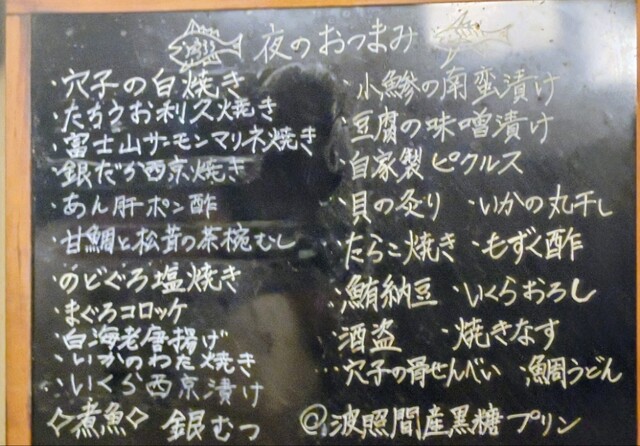 夜のおつまみ
・穴子の白焼き
・たちうお利久焼き
・富士山サーモンマリネ焼き
・銀だか西京焼き
・あん肝ポン酢
・甘鯛と松茸の茶椀むし
・のどぐろ塩焼き
・まぐろコロッケ
・白海老唐揚げ
・いかのわた焼き
・いくら西京漬け
◇煮魚◇ 銀むつ
・小鯵の南蛮漬け
・豆腐の味噌漬け
・自家製ピクルス
・貝の炙り ・いかの丸干し
・たらこ焼き ・もずく酢
・鮪納豆 ・いくらおろし
・酒盗 ・焼きなす
・穴子の骨せんべい ・鯛うどん
@波照間産黒糖プリン